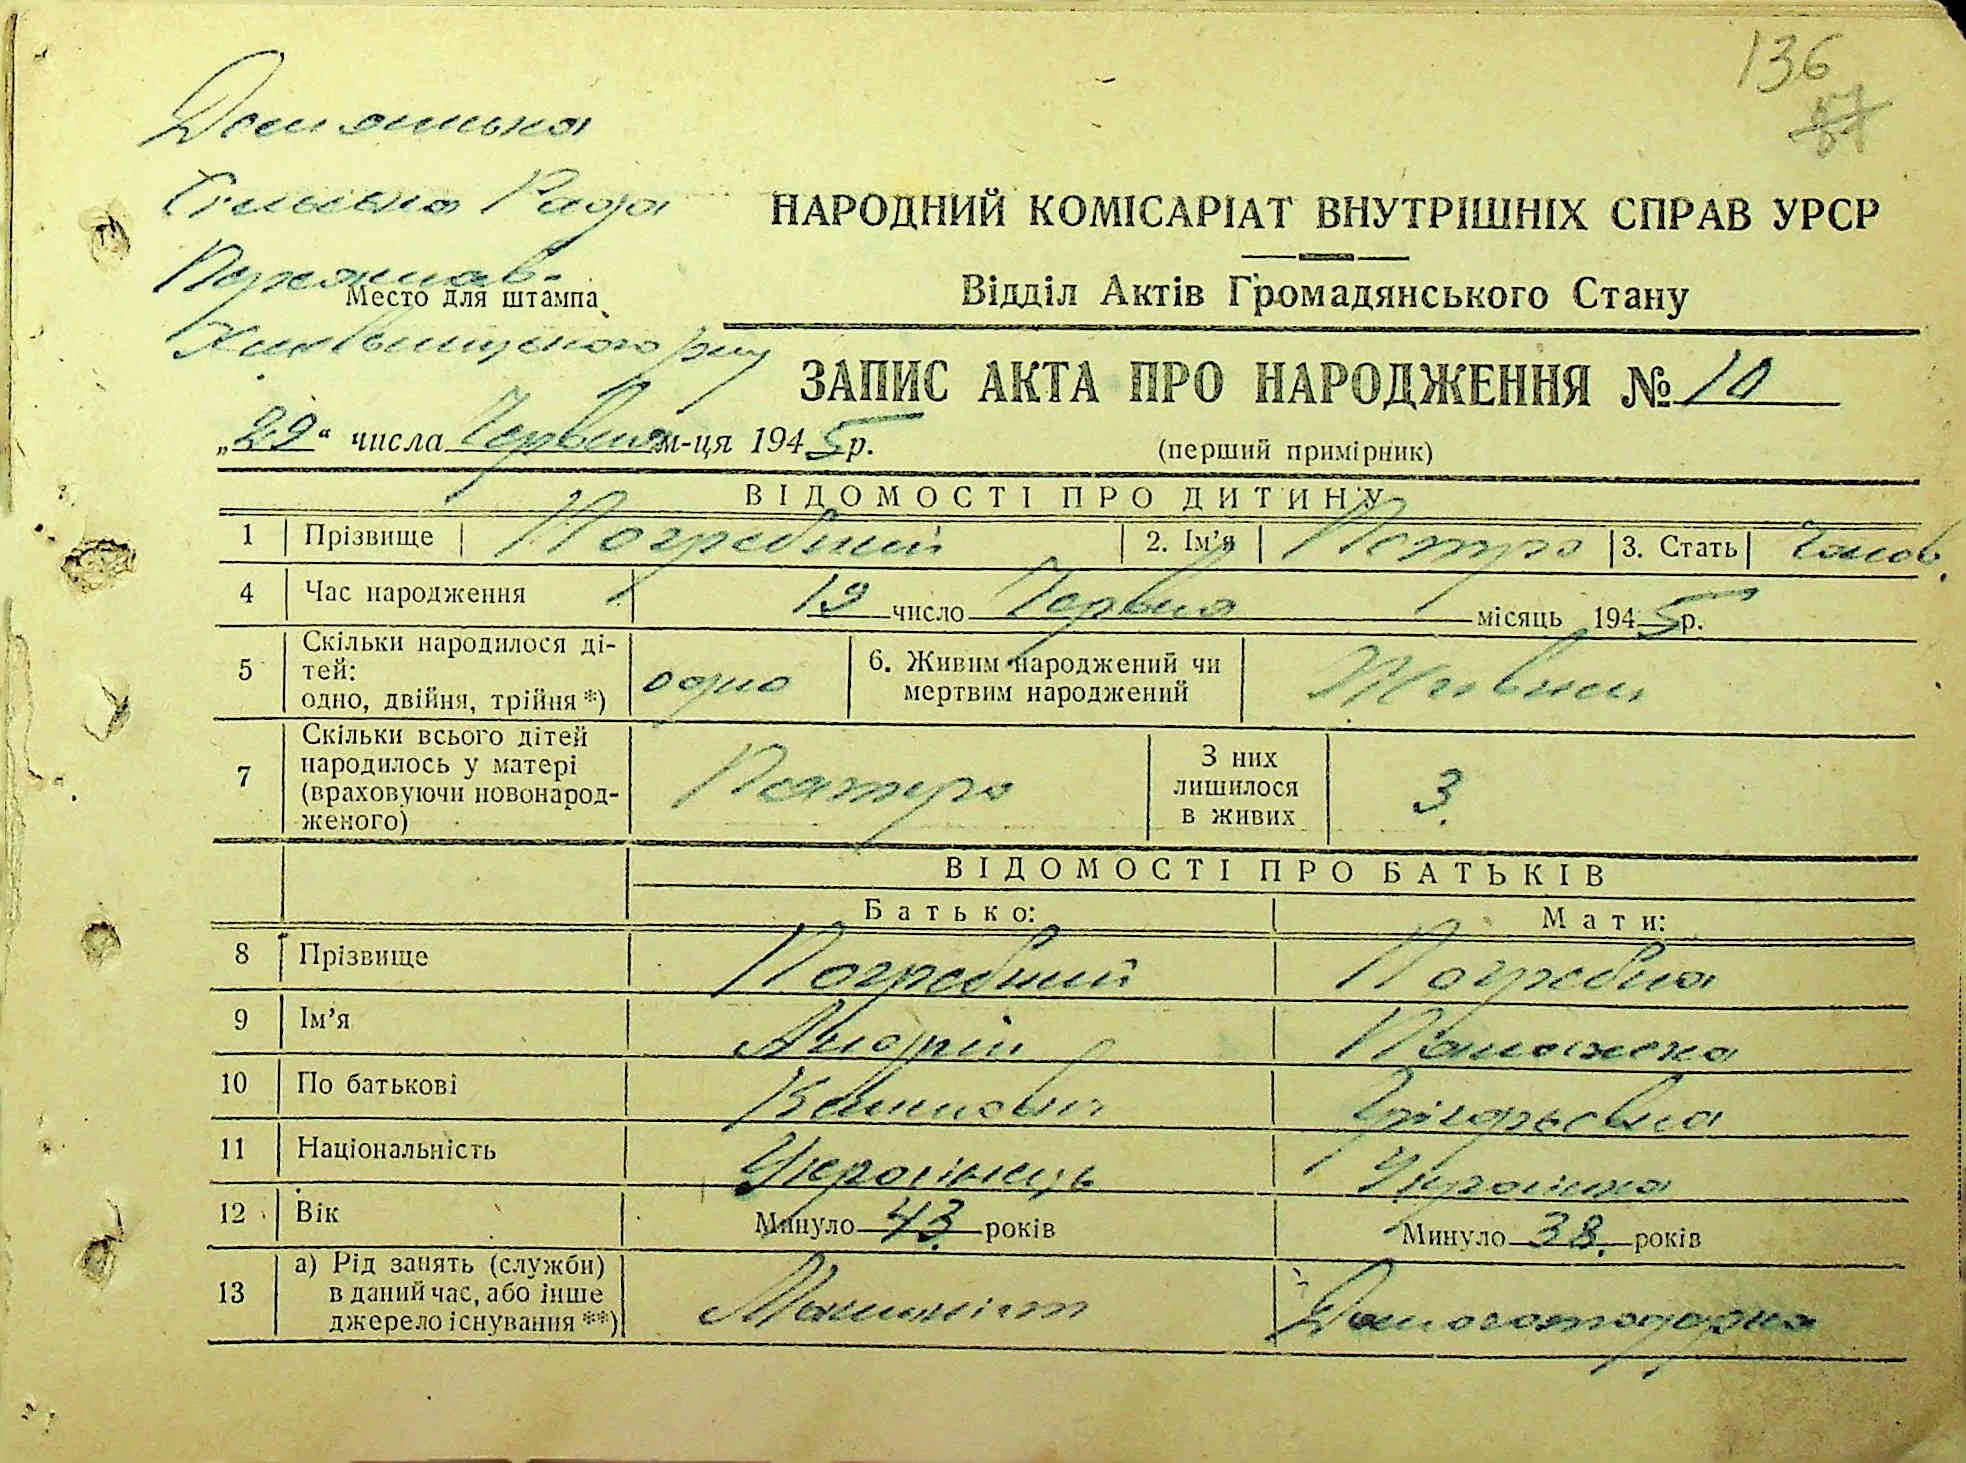 136
Дем'янська
Сільська Рада
Переяслав-
Место для штампа
Хмельницького р-ну
НАРОДНИЙ КОМІСАРІАТ ВНУТРІШНІХ СПРАВ УРСР
Відділ Актів Громадянського Стану
ЗАПИС АКТА ПРО НАРОДЖЕННЯ № 10
„29“ числа Червня м-ця 1945 р. (перший примірник)
ВІДОМОСТІ ПРО ДИТИНУ
1 Прізвище Погребний 2. Ім'я Петро 3. Стать Чолов.
4 Час народження 19 число Червня місяць 1945 р.
5 Скільки народилося ді-
тей:
одно, двійня, трійня *) одно 6. Живим народжений чи
мертвим народжений Живим
7 Скільки всього дітей
народилось у матері
(враховуючи новонарод-
женого) Пятеро З них
лишилося
в живих 3.
ВІДОМОСТІ ПРО БАТЬКІВ
Батько: Мати:
8 Прізвище Погребний Погребна
9 Ім'я Андрій Палажка
10 По батькові Григорьєвна
11 Національність Українець Українка
12 Вік Минуло 43. років Минуло 38. років
13 а) Рід занять (служби)
в даний час, або інше
джерело існування **) Машиніст Домогосподарка